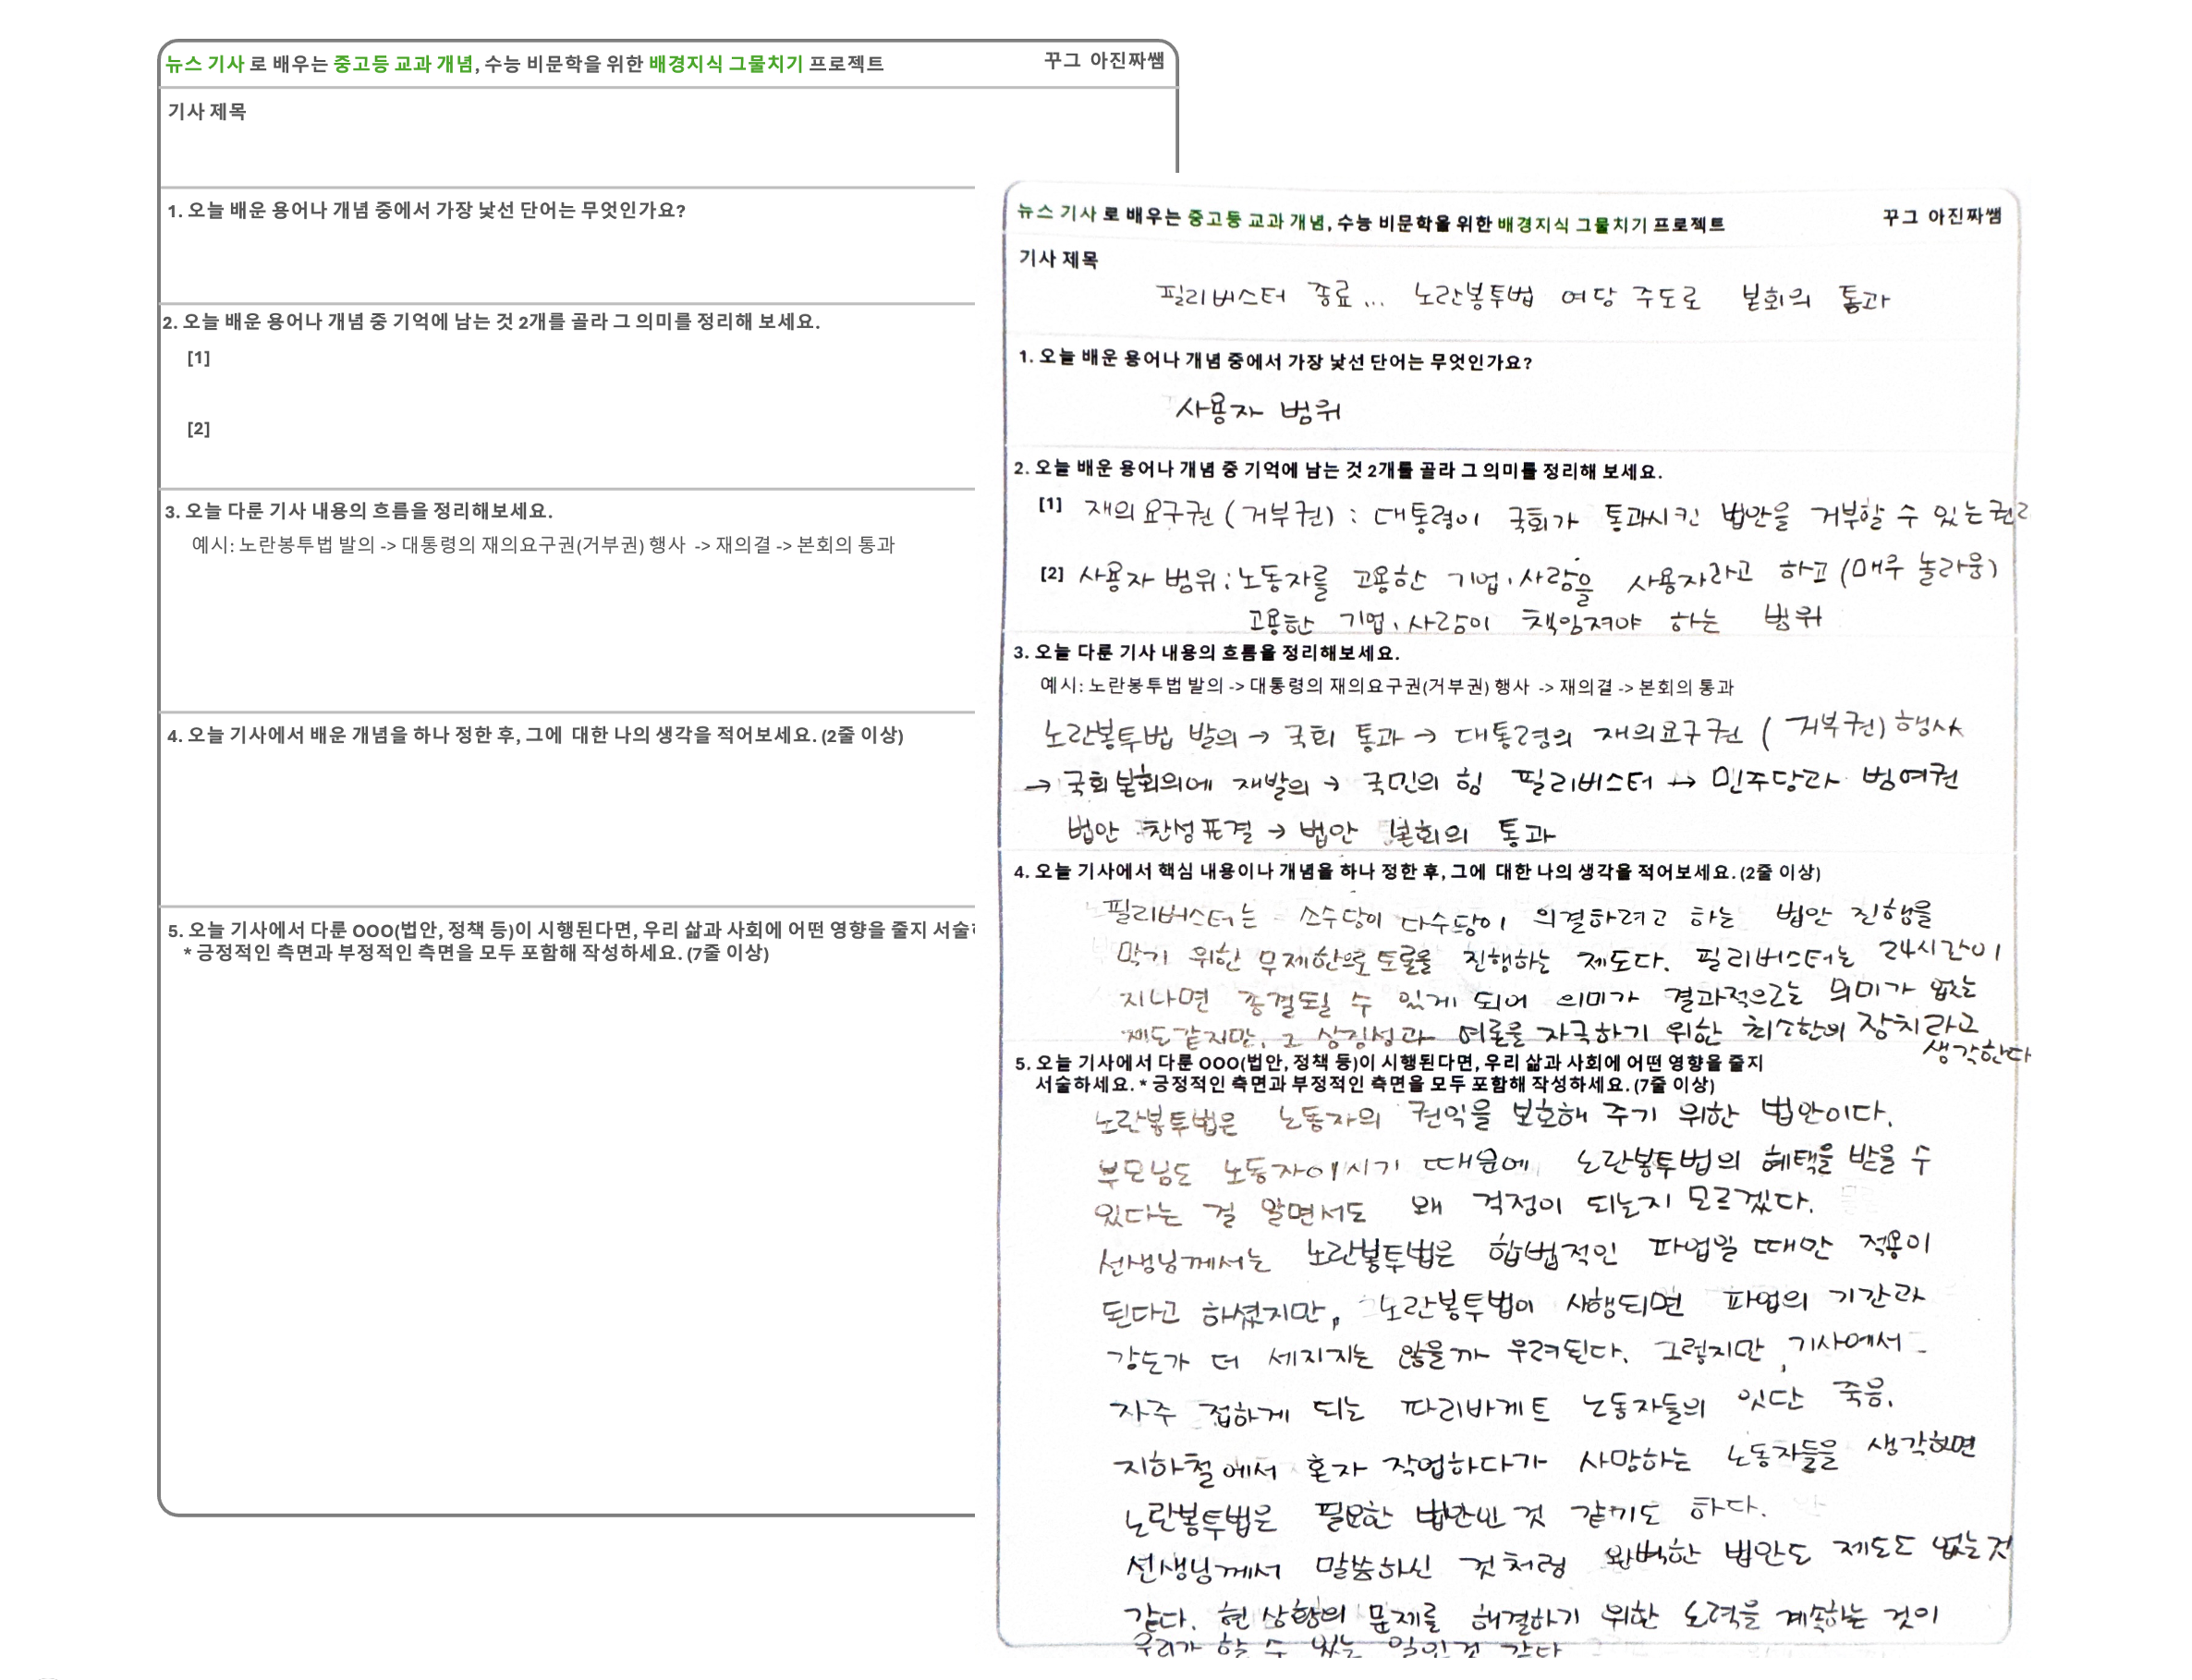 뉴스 기사 로 배우는 중고등 교과 개념, 수능 비문학을 위한 배경지식 그물치기 프로젝트
꾸그 아진짜쌤
기사 제목
1. 오늘 배운 용어나 개념 중에서 가장 낯선 단어는 무엇인가요?
2. 오늘 배운 용어나 개념 중 기억에 남는 것 2개를 골라 그 의미를 정리해 보세요.
[1]
[2]
3. 오늘 다룬 기사 내용의 흐름을 정리해보세요.
예시: 노란봉투법 발의 -> 대통령의 재의요구권(거부권) 행사 -> 재의결 -> 본회의 통과
4. 오늘 기사에서 배운 개념을 하나 정한 후, 그에 대한 나의 생각을 적어보세요. (2줄 이상)
5. 오늘 기사에서 다룬 OOO(법안, 정책 등)이 시행된다면, 우리 삶과 사회에 어떤 영향을 줄지
* 긍정적인 측면과 부정적인 측면을 모두 포함해 작성하세요. (7줄 이상)
뉴스 기사 로 배우는 중고등 교과 개념, 수능 비문학을 위한 배경지식 그물치기 프로젝트
꾸그 아진짜쌤
기사 제목
필리버스터 종료... 노란봉투법 여당 주도로 본회의 통과
1. 오늘 배운 용어나 개념 중에서 가장 낯선 단어는 무엇인가요?
사용자 범위
2. 오늘 배운 용어나 개념 중 기억에 남는 것 2개를 골라 그 의미를 정리해 보세요.
[1] 재의요구권 (거부권) : 대통령이 국회가 통과시킨 법안을 거부할 수 있는 권리
[2] 사용자 범위 : 노동자를 고용한 기업·사람을 사용자라고 하고 (매우 놀라움)
고용한 기업·사람이 책임져야 하는 범위
3. 오늘 다룬 기사 내용의 흐름을 정리해보세요.
예시: 노란봉투법 발의 -> 대통령의 재의요구권(거부권) 행사 -> 재의결 -> 본회의 통과
노란봉투법 발의 → 국회 통과 → 대통령의 재의요구권 (거부권) 행사
→ 국회 본회의에 재발의 → 국민의 힘 필리버스터 → 민주당과 범여권
법안 찬성표결 → 법안 본회의 통과
4. 오늘 기사에서 핵심 내용이나 개념을 하나 정한 후, 그에 대한 나의 생각을 적어보세요. (2줄 이상)
필리버스터는 소수당이 다수당이 의결하려고 하는 법안 진행을
막기 위한 무제한으로 토론을 진행하는 제도다. 필리버스터는 24시간이
지나면 종결될 수 있게 되어 의미가 결과적으로는 의미가 없는
제도같지만, 그 상징성과 여론을 자극하기 위한 최소한의 장치라고
생각한다
5. 오늘 기사에서 다룬 OOO(법안, 정책 등)이 시행된다면, 우리 삶과 사회에 어떤 영향을 줄지
서술하세요. * 긍정적인 측면과 부정적인 측면을 모두 포함해 작성하세요. (7줄 이상)
노란봉투법은 노동자의 권익을 보호해 주기 위한 법안이다.
부모님도 노동자이시기 때문에 노란봉투법의 혜택을 받을 수
있다는 걸 알면서도 왜 걱정이 되는지 모르겠다.
선생님께서는 노란봉투법은 합법적인 파업일 때만 적용이
된다고 하셨지만, 노란봉투법이 시행되면 파업의 기간과
강도가 더 세지지는 않을까 우려된다. 그렇지만, 기사에서
자주 접하게 되는 파리바게트 노동자들의 잇단 죽음,
지하철에서 혼자 작업하다가 사망하는 노동자들을 생각하면
노란봉투법은 필요한 법안인 것 같기도 하다.
선생님께서 말씀하신 것처럼 완벽한 법안도 제도도 없는것
같다. 현 상황의 문제를 해결하기 위한 노력을 계속하는 것이
우리가 할 수 있는 일인것 같다